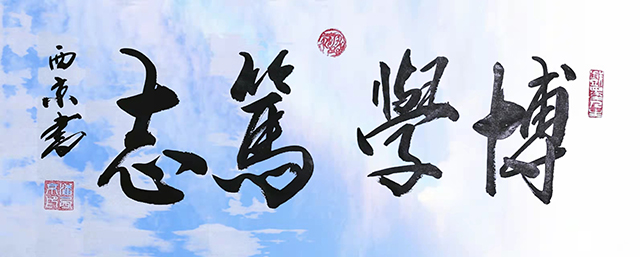 博學篤志
西京書